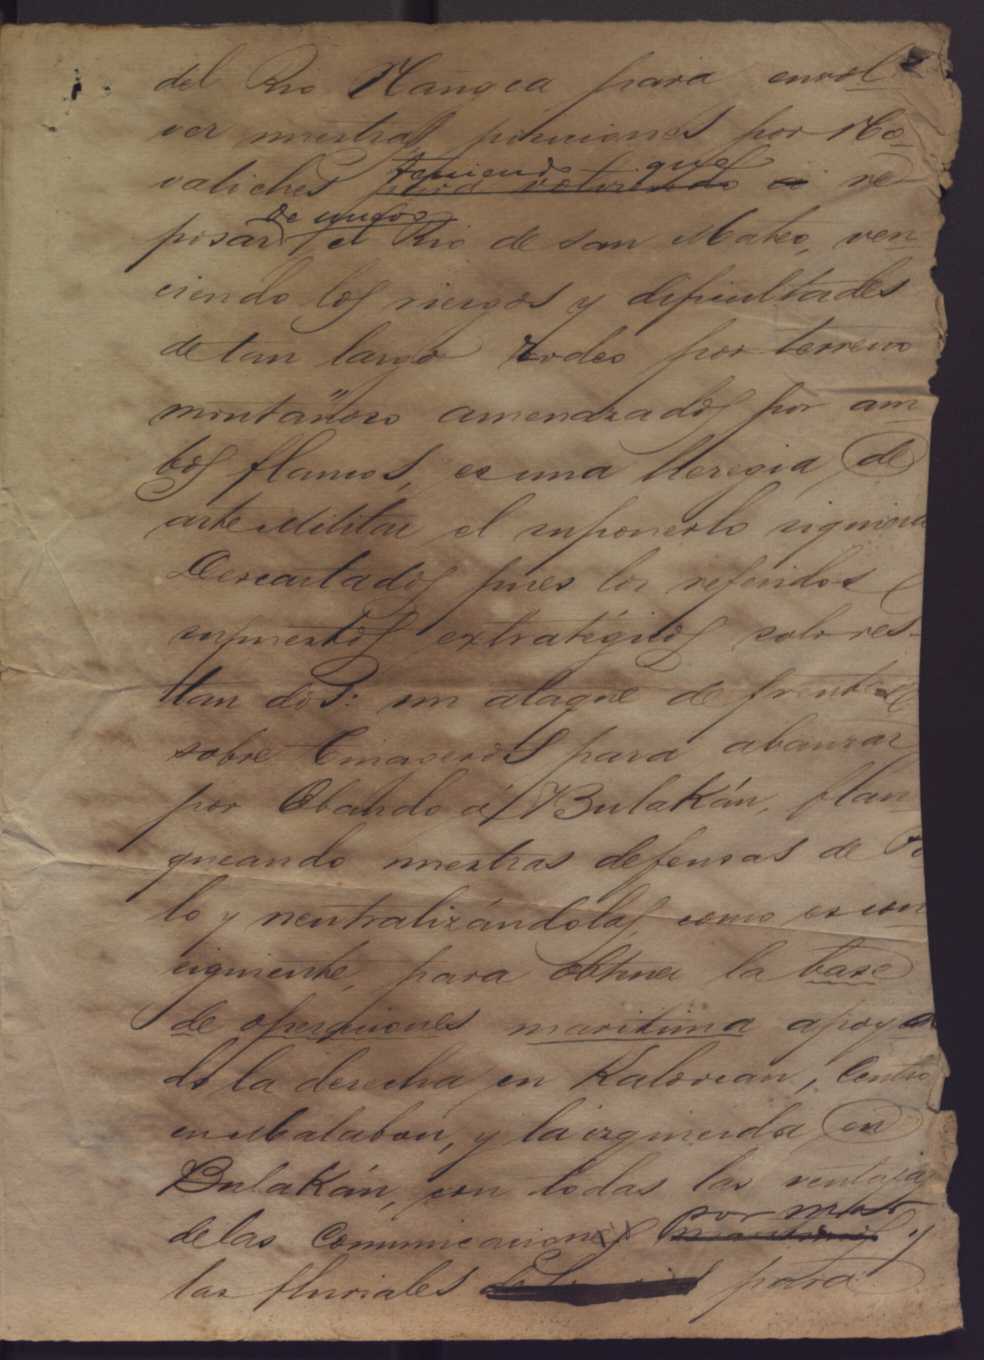 del Rio Nangca para envol
ver nuestras posiciones por No
valiches teniendo que re
pasar de nuevo el Rio de San Mateo, ven
ciendo los riesgos y dificultades
de tan largo rodeo por terreno
montañoso amenazados por am
bos flancos, es una heregia de
arte Militar el suponerlo siquiera
Descartados pues los referidos
supuestos extratégicos solo res-
tan dos: un ataque de frente
sobre para abanzar
por Obando á Bulakán, flan
queando nuestras defensas de Po
lo y neutralizándolas, como es con
siguiente, para obtener la base
de operaciones maritima apoyan
do la derecha en Kalookan, Centro
en Malabon, y la izquierda en
Bulakán, con todas las ventajas
de las Comunicaciones por mar y
las fluviales para